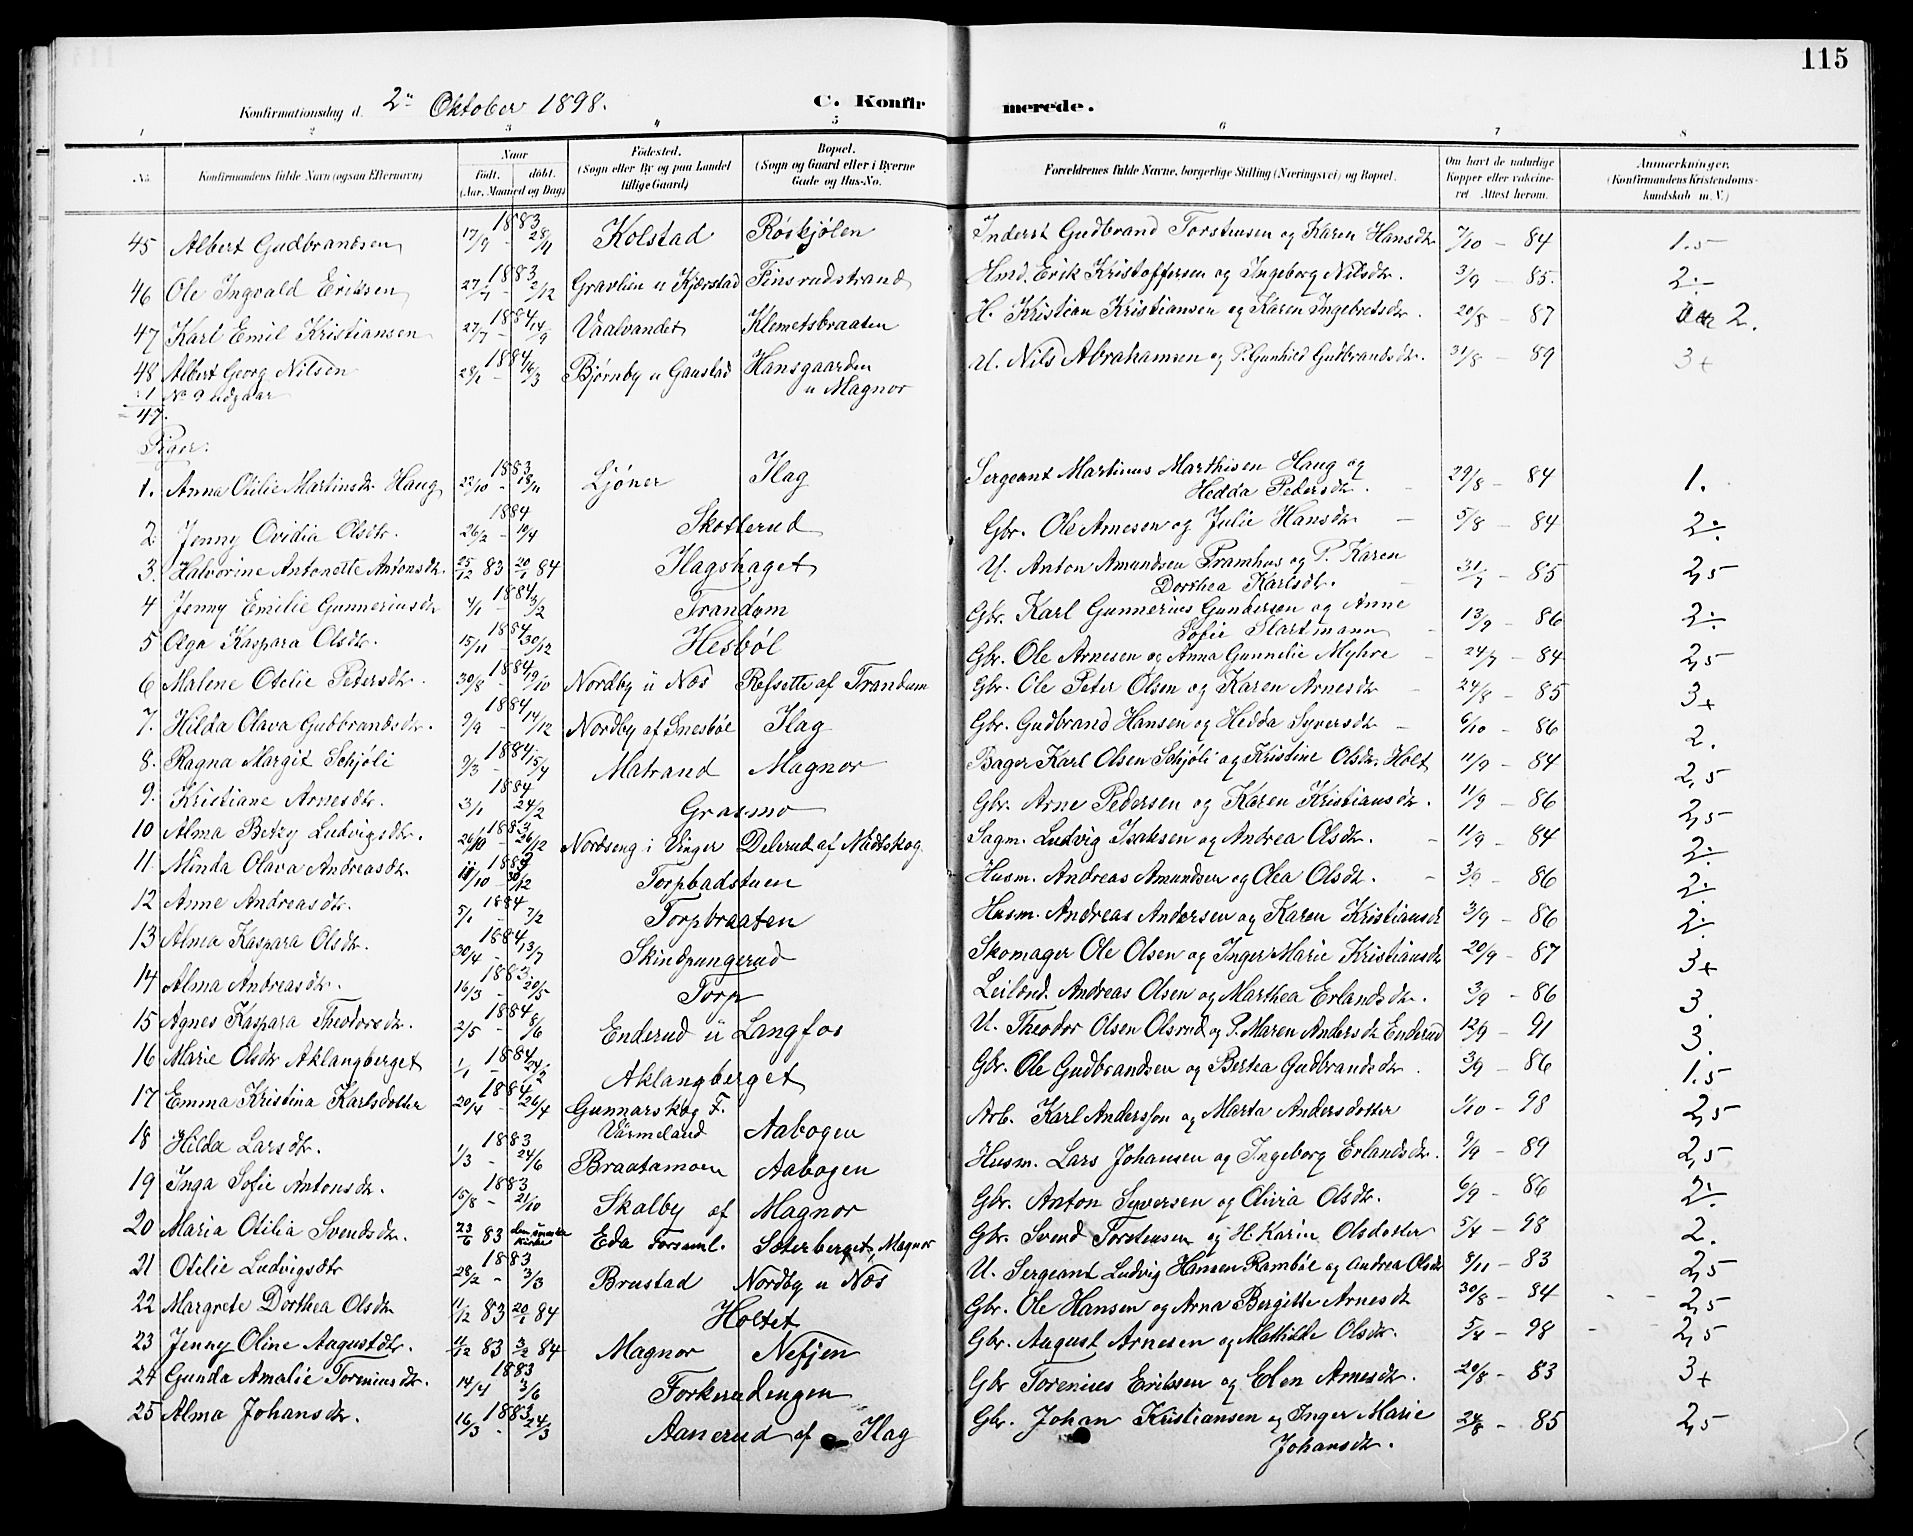 115
Konfirmationsdag d. 2den Oktober 1898. C. Konfirmerede.
1 2 3 4 5 6 7 8
No. Konfirmandens fulde Navn (ogsaa Efternavn) Naar født. døbt. (Aar, Maaned og Dag) Fødested. (Sogn eller By og paa Landet tillige Gaard) Bopæl. (Sogn og Gaard eller i Byerne Gade og Hus-No. Forældrenes fulde Navne, borgerlige Stilling (Næringsvei) og Bopæl. Om havt de naturlige Kopper eller vakcineret Attest herom. Anmærkninger. (Konfirmandens Kristendomskundskab m. V.)
45 Albert Gudbrandsen 1883 17/9 - 28/11 Kolstad Røskjølen Inderst Gudbrand Torstensen og Karen Hansdtr 7/10 - 84 1.5
46 Ole Ingvald Eriksen 1883 27/7 - 2/12 Gravlien u Kjærstad Finsrudstrand Hmd. Erik Kristoffersen og Ingeborg Nilsdtr. 3/9 - 85. 2÷
47 Karl Emil Kristiansen 1884 27/7 - 14/9 Vaalvandet Klemetsbraaten H. Kristian Kristiansen og Karen Ingebretsdtr. 20/8 - 87 2.
48 Albert Georg Nilsen 1884 28/1 - 16/3 Bjørnby u Gaustad Hansgaarden u Magnor U. Nils Abrahamsen og P. Gunhild Gudbrandsdtr. 31/8 - 89 3+
÷ 1 No 9 udgaar
= 47.
Piger:
1. Anna Otilie Martinsdtr Haug 1883 22/10 - 18/11 Ljøner Ilag Sergeant Martinus Marthisen Haug og Hedda Pedersdtr. 29/8 - 84 1.
2 Jenny Ovidia Olsdtr. 1884 26/2 - 14/4 Skotterud Gbr. Ole Arnesen og Julie Hansdtr 5/8 - 84 2÷
3. Halvorine Antonette Antonsdtr. 25/12 83 20/1 84 Ilagshaget U. Anton Amundsen Framhus og P. Karen Dorthea Karlsdtr. 31/7 - 85 2,5
4 Jenny Emilie Gunneriusdtr 1884 4/1 3/2 Trandom Gbr. Karl Gunnerius Gundersen og Anne Sofie Hartmann 13/9 - 86 2÷
5 Olga Kaspara Olsdtr. 1884 15/11 - 30/12 Hesbøl Gbr. Ole Arnesen og Anna Gunnelie Myhre 24/7 - 84 2,5
6 Malene Otelie Petersdtr. 1884 30/8 - 19/10 Nordby u Næs Refsette af Trandum Gbr. Ole Peter Olsen og Karen Arnesdtr 24/8 - 85 3+
7. Hilda Olava Gudbrandsdtr. 1884 9/9 - 14/12 Nordby af Snesbøl Ilag Gbr. Gudbrand Hansen og Hedda Syversdtr 6/10 - 86 2.
8. Ragna Margit Schjøli 1884 9/3 - 15/4 Matrand Magnor Bager Karl Olsen Schjøli og Kristine Olsdtr. Holt 11/9 - 84 2,5
9. Kristiane Arnesdtr. 1884 3/1 24/2 Grasmo Gbr. Arne Pedersen og Karen Kristiansdtr. 11/9 - 86 2,5
10 Alma Betzy Ludvigsdtr. 1883 26/10 - 26/12 Nordseng i Vinger Delerud af Nadtskog Sagm. Ludvig Isaksen og Andrea Olsdtr. 11/9 - 84 2÷
11 Minda Olava Andreasdtr. 1883 11/10 - 30/12 Torpbadstuen Husm. Andreas Amundsen og Olea Olsdtr. 3/9 - 86 2÷
12 Anne Andreasdtr. 1884 5/1 - 7/2 Torpbraaten Husm. Andreas Andersen og Karen Kristiansdtr 3/9 - 86 2÷
13 Alma Kaspara Olsdtr. 1884 30/4 - 13/7 Skindpungerud Skomager Ole Olsen og Inger Marie Kristiansdtr 20/9 - 87 3+
14 Alma Andreasdtr. 1883 16/3 - 20/5 Torp Leilænd. Andreas Olsen og Marthea Erlandsdtr. 3/9 - 86 3.
15 Agnes Kaspara Theodorsdtr. 1884 2/5 - 8/6 Enderud u Langfos U. Theodor Olsen Olsrud og P. Maren Andersdtr Enderud 12/9 - 91 3.
16 Marie Olsdtr Aklangberget 1884 1/1 - 24/2 Aklangberget Gbr. Ole Gudbrandsen og Berthea Gudbrandsdtr. 3/9 - 86 1.5
17 Emma Kristina Karlsdotter 1884 20/4 - 26/4 Gunnarskog F. Värmeland Aabogen Arb. Karl Andersson og Marta Andersdotter 1/10 - 98 2,5
18 Hilda Larsdtr. 1883 1/3 - 24/6 Braatamoen Aabogen Husm. Lars Johansen og Ingeborg Erlandsdtr. 9/9 - 89 2,5
19 Inga Sofie Antonsdtr. 1883 15/8 - 21/10 Skalby af Magnor Gbr. Anton Syversen og Olivia Olsdtr. 6/9 - 86 2÷
20 Maria Otilia Svendsdtr. 23/6 83 Eda Forsaml. Säterberget, Magnor Gbr. Svend Torstensen og H. Karin Olsdotter 5/4 - 98 2.
21 Otilie Ludvigsdtr 1883 28/2 - 3/3 Brustad Nordby u Næs U. Sergeant Ludvig Hansen Rambøl og Andrea Olsdtr 8/11 - 83 2,5
22 Margrete Dorthea Olsdtr 11/12 83 20/1 84 Holtet Gbr. Ole Hansen og Arna Bergitte Arnesdtr 30/8 - 84 2,5
23 Jenny Oline Augustdtr. 11/12 83 3/2 84 Magnor Nefjen Gbr. August Arnesen og Mathilde Olsdtr. 5/4 - 98 2,5
24 Gunda Amalie Toreniusdtr. 1883 14/4 3/6 Forkerudengen Gbr Torenius Eriksen og Elen Arnesdtr. 20/8 - 83 3+
25 Alma Johansdtr. 1883 16/3 - 24/3 Aanerud af Ilag Gbr. Johan Kristiansen og Inger Marie Johansdtr. 24/8 - 85 2,5